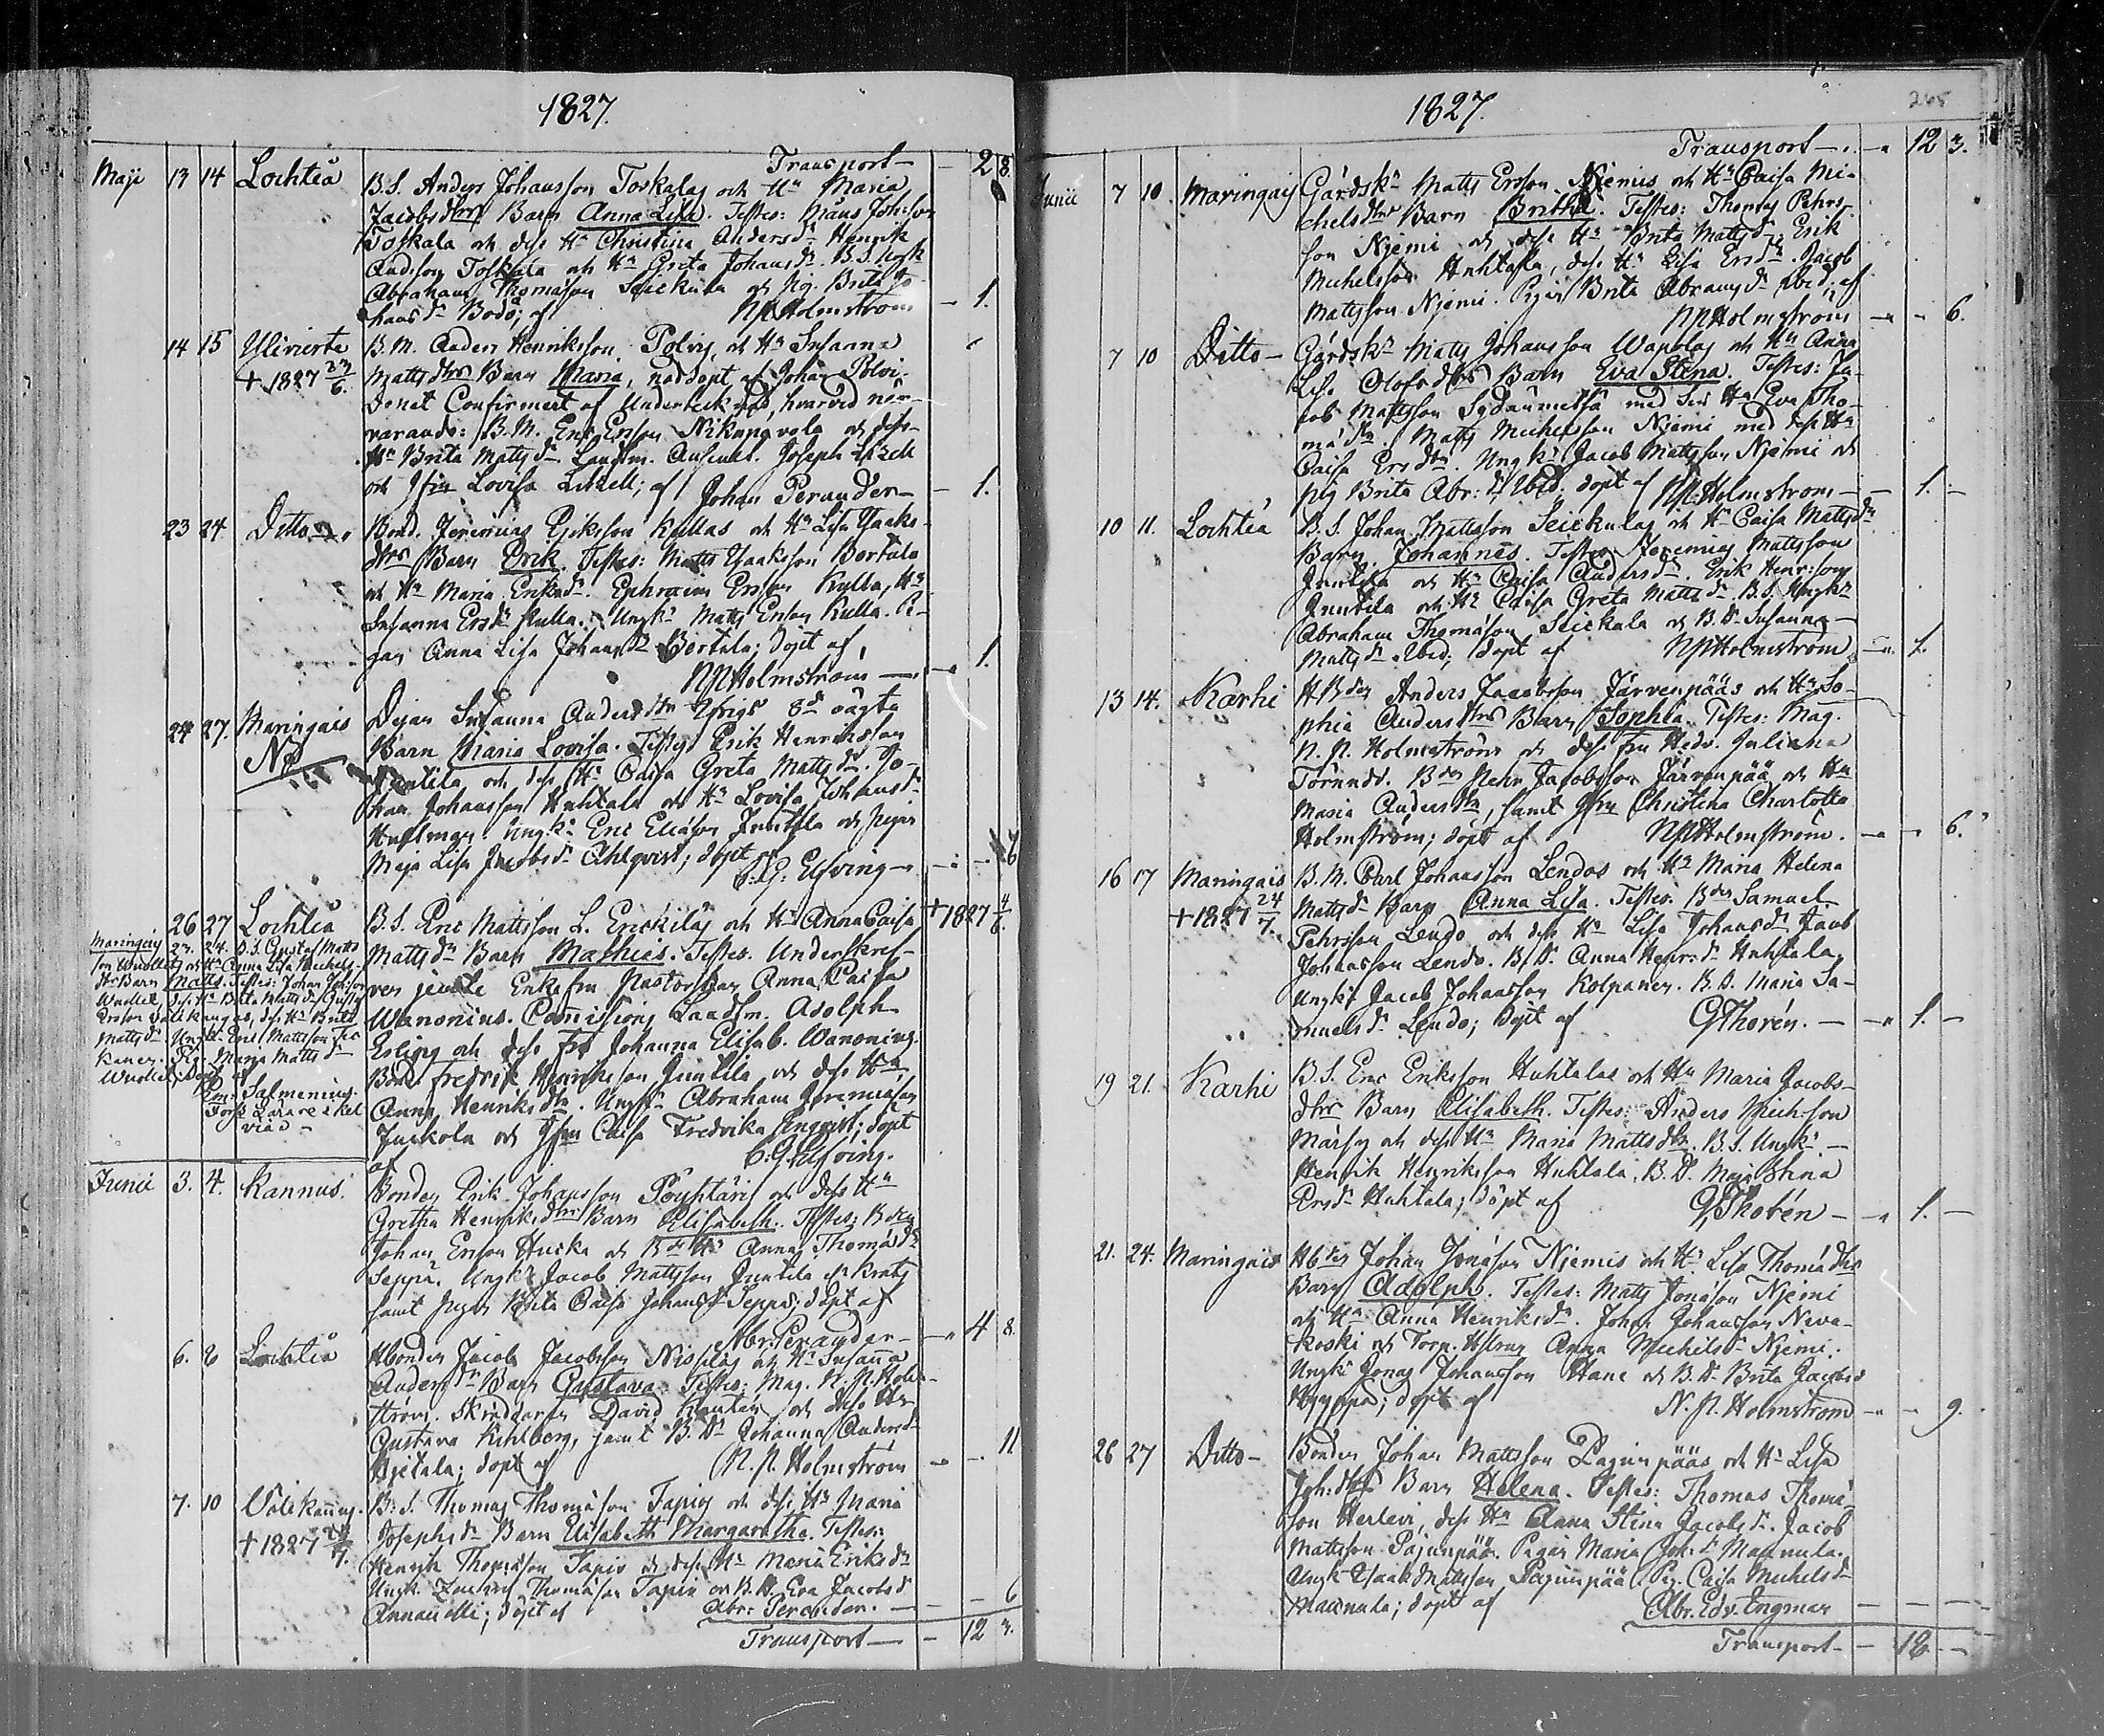 1827.
Transport — 2 8.
Maji 13 14 Lochteå B.S. Anders Johansson Toskalas och Hu Maria
Jacobsdtrs Barn Anna Lisa. Testes: Måns Joh:son
Toskala och dess Hu Christina Andersdr Henrik
Andsson Toskala och Hu Greta Johansdr. B.S. Ungk
Abraham Thomasson Seickula och Pig. Brita Jo-
hansdr Bodö; af NPHolmström — 1.
14 15 Ylivierte B.M. Anders Henriksson Polvis och Hu Susanna
+ 1827 23/6. Mattsdtrs Barn Maria, nöddopt af Johan Polvi.
Donet Confirmert af Undertecknad, hvarvid när-
varande: B.M. Eric Ersson Nikupavola och dess
Hu Brita Mattsdr Landtm. Auscult. Joseph Litzell
och Jfru Lovisa Litzell; af Johan Perander — 1.
23 24. Ditto — Bond. Jeremias Eriksson Kullas och Hu Lisa Isaks-
dtrs Barn Erik. Testes: Matts Isaksson Bertula
och Hu Maria Eriksdr. Ephraim Ersson Kulla, Hu
Susanna Ersdr Kulla. Ungkr Matts Ersson Kulla. Pi-
gan Anna Lisa Johansdr Bertula; döpt af,
NPHolmström — 1.
24 27. Maringais Pigan Susanna Andersdtr Yrigs 3d oägta
No Barn Maria Lovisa. Testes Erik Henriksson
Juntila och dess Hu Caisa Greta Mattsdr. Jo-
han Johansson Huhtala och Hu Lovisa Johansdr
Hultman. Ungkr Eric Eliasson Juntila och pigan
Maja Lisa Jacobsdr Ahlqvist; döpt af
C.G. Elfving — 6
26 27 Lochteå B.S. Eric Mattsson L. Erickiläs och Hu Anna Caisa + 1827 4/6.
Mattsdr Barn Mathias. Testes. Underskref-
ven jemte Enkefru Pastorskan Anna Caisa
Wanonius. Comissions Landtm. Adolph
Esling och dess Fru Johanna Elisab. Wanonius.
Bond. Fredrik Henriksson Juntila och dess Hu
Anna Henriksdtr. Ungkr Abraham Jeremiasson
Juckola och Jfru Caisa Fredrika Engqvist; döpt
af C.G. Elfving.
Maringais 23. 24. B.S. Gustaf Matts-
son Wuolles och Hu Anna Lisa Michels-
dtrs Barn Matts. Testes: Johan Johsson
Wuolle, dess Hu Brita Mattsdr Gustaf
Ersson Välikangas, dess Hu Brita
Mattsdr. Ungkr Eric Mattsson
Pig. Maria Mattsdr
Wuolle; döpt af
Salmenius.
Förs. Lärare i Kel
viå —
Junii 3. 4. Kannus. Bonden Erik Johansson Pöyhtäris och dess Hu
Gretha Henriksdtrs Barn Elisabeth. Testes: Bden
Johan Ersson Hucka och Bds Hu Anna Thomasdr
Seppä. Ungkr Jacob Mattsson Juntila
samt pigan Brita Caisa Johansdr Seppä; döpt af
Abr: Perander — 4 8.
6. 8 Lochteå Hbonden Jacob Jacobsson Nissiläs och Hu Susanna
Andersdr Barn Gustava. Testes: Mag. N.P. Holm-
ström. Skräddaren David Rautan och dess Hu
Gustava Kihlberg, samt B.Dr Johanna Andersdr
Bjetala; döpt af N.P. Holmström — 11
7. 10 Välikangas. B:S. Thomas Thomasson Tapios och dess Hu Maria
+ 1827 /7. Josephsdr Barn Elisabeth Margaretha. Testes:
Henrik Thomasson Tapio och dess Hu Maria Eriksdr
Ungk. Zachris Thomasson Tapio och B.D. Eva Jacobsdr
Annanolli; döpt af Abr: Perander. — 6
Transport — 12 3.
1827. 265
Transport — 12 3.
Junii 7 10. Maringais Gårdskn Matts Ersson Njemis och Hu Caisa Mi-
chelsdtrs Barn Britha. Testes: Thomas Pehrs-
son Njemi och dess Hu Brita Mattsdr. Erik
Michelsson Huhtala, dess Hu Lisa Ersdr. Jacob
Mattsson Njemi. Pigan Brita Abramsdr ibid; af
NPHolmström — 6.
7 10 Ditto — Gårdskn Matts Johansson Wapolas och Hu Anna
Lisa Olofsdtrs Barn Eva Stina. Testes: Ja-
cob Mattsson Sydänmetsä med sin Hu Eva Tho-
madtr. Matts Michelsson Njemi med dess Hu
Caisa Ersdtr. Ungkr Jacob Mattsson Njemi och
pig Brita Abr: dr ibid. döpt af NP:Holmström — 1. —
10 11. Lochteå B.S. Johan Mattsson Seickulas och Hu Caisa Mattsdr
Barn Johannes. Testes Jeremias Mattsson
Juntila och Hu Caisa Andersdr. Erik Henr:son
Juntila och Hu Caisa Greta Mattsdr. B.S. Ungkr
Abraham Thomasson Seickala och B.Dr Susanna
Mattsdr ibid; döpt af NPHolmström — 1.
13 14. Karhi HBden Anders Jacobsson Järvenpääs och Hu So-
phia Andersdtrs Barn Sophia. Testes: Mag.
N.P. Holmström och dess fru Hedv. Juliana
Törnudd. Bden Pehr Jacobsson Järvenpää och Hu
Maria Andersdtr, samt Jfru Christina Charlotta
Holmström; döpt af NPHolmström. — 6.
16 17 Maringais B.M. Carl Johansson Lendos och Hu Maria Helena
+ 1827 24/7. Mattsdr Barn Anna Lisa. Testes. Bden Samuel
Pehrsson Lendo och dess Hu Lisa Johansdr Jacob
Johansson Lendo. B.Dr Anna Henrsdr Huhtala.
Ungkr Jacob Johansson Kolpanen. B.D. Maria Sa-
muelsdr Lendo; döpt af GThorén. — 1. —
19 21. Karhi B.S. Eric Eriksson Huhtalas och Hu Maria Jacobs-
dtrs Barn Elisabeth. Testes: Anders Mich:son
Märsy och dess Hu Maria Mattsdtr. B.S. Ungkr —
Henrik Henriksson Huhtala. B.Dr Maja Stina
Ersdr Huhtala; döpt af GThorén — 1. —
21. 24. Maringais Hbden Johan Jonasson Njemis och Hu Lisa Thomædtrs
Barn Adolph. Testes: Matts Jonasson Njemi
och Hu Anna Henriksdr. Johan Johansson Neva-
koski och Torp. Hstrun Anna Michelsdr Njemi.
Ungkr Jonas Johansson Hane och B.Dr Brita Jacobsd
Hyyppä; döpt af N.P. Holmström — 9.
26 27 Ditto — Bonden Johan Mattsson Pajunpääs och Hu Lisa
Joh:dtrs Barn Helena. Testes: Thomas Thoma-
son Herlevi, dess Hu Anna Stina Jacobsdr. Jacob
Mattsson Pajunpää. Pigan Maria Joh:dr Maunula.
Ungk Isaak Mattsson Pajunpää. Pig. Caisa Michelsdr
Maunula; döpt af Abr. Edv. Engman —
Transport — 18 —